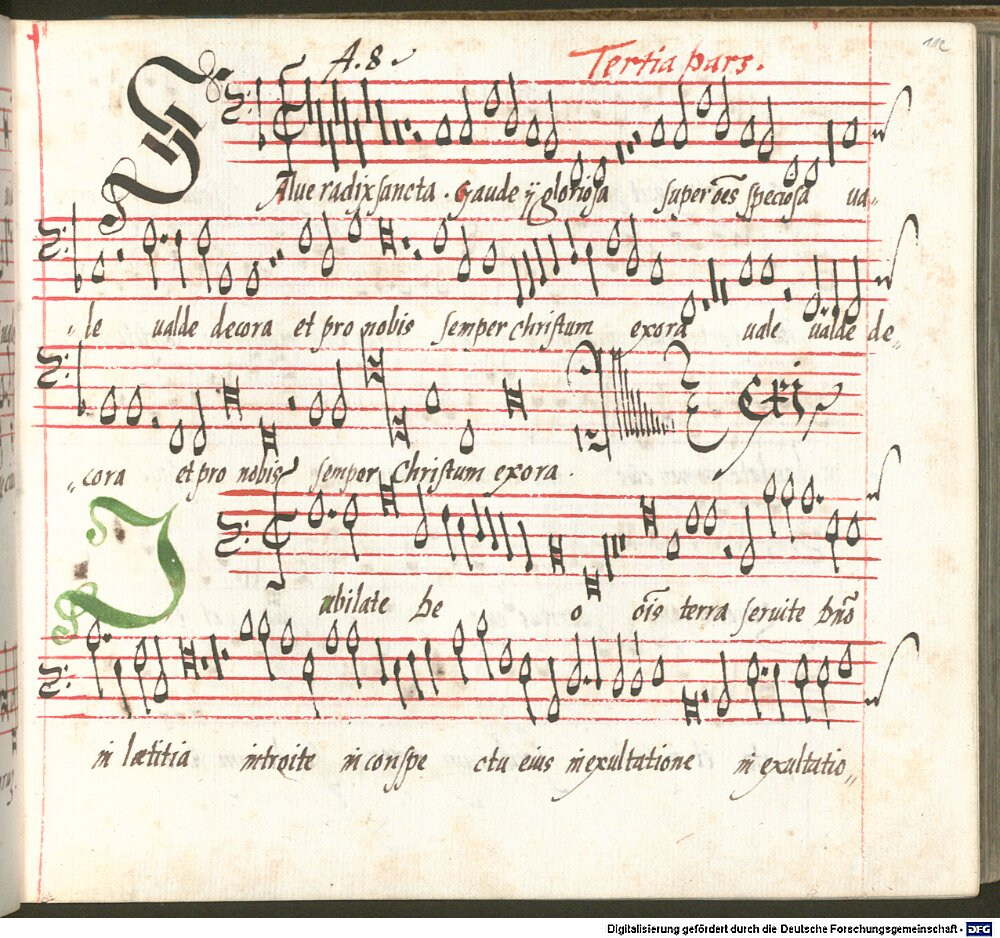 A. 8. Tertia pars. 112
SAlue radix sancta. Gaude ij gloriosa super oēs speciosa ua-
le ualde decora et pro nobis semper christum exora uale ualde de-
cora et pro nobis semper Christum exora.
Iubilate De o oīs terra seruite Dn̄o
in lætitia introite in conspe ctu eius in exultatione in exultatio
Digitalisierung gefördert durch die Deutsche Forschungsgemeinschaft - DFG